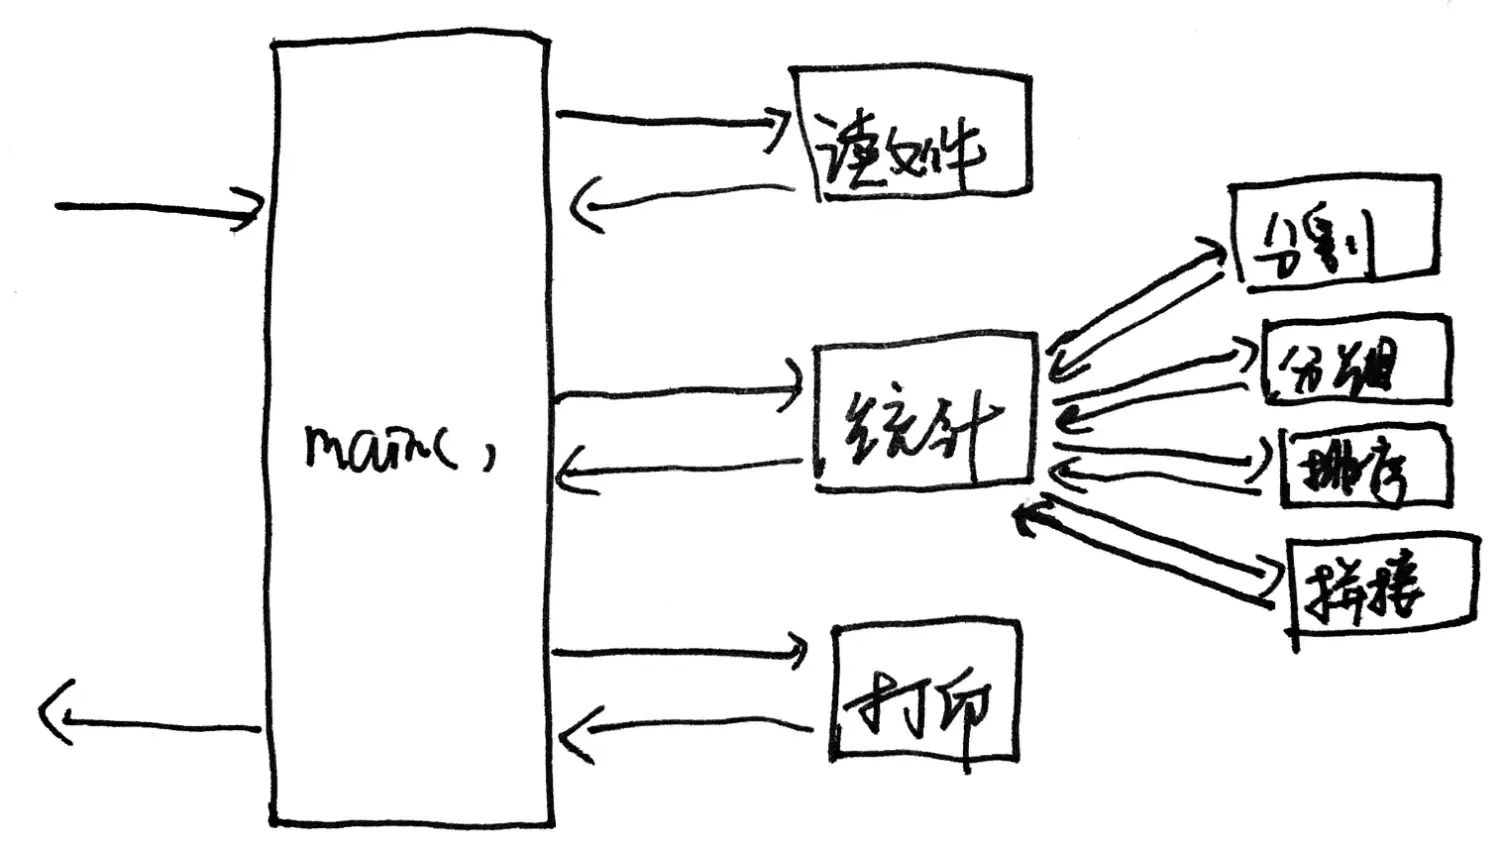 main()
读文件
统计
打印
分割
分组
排序
拼接